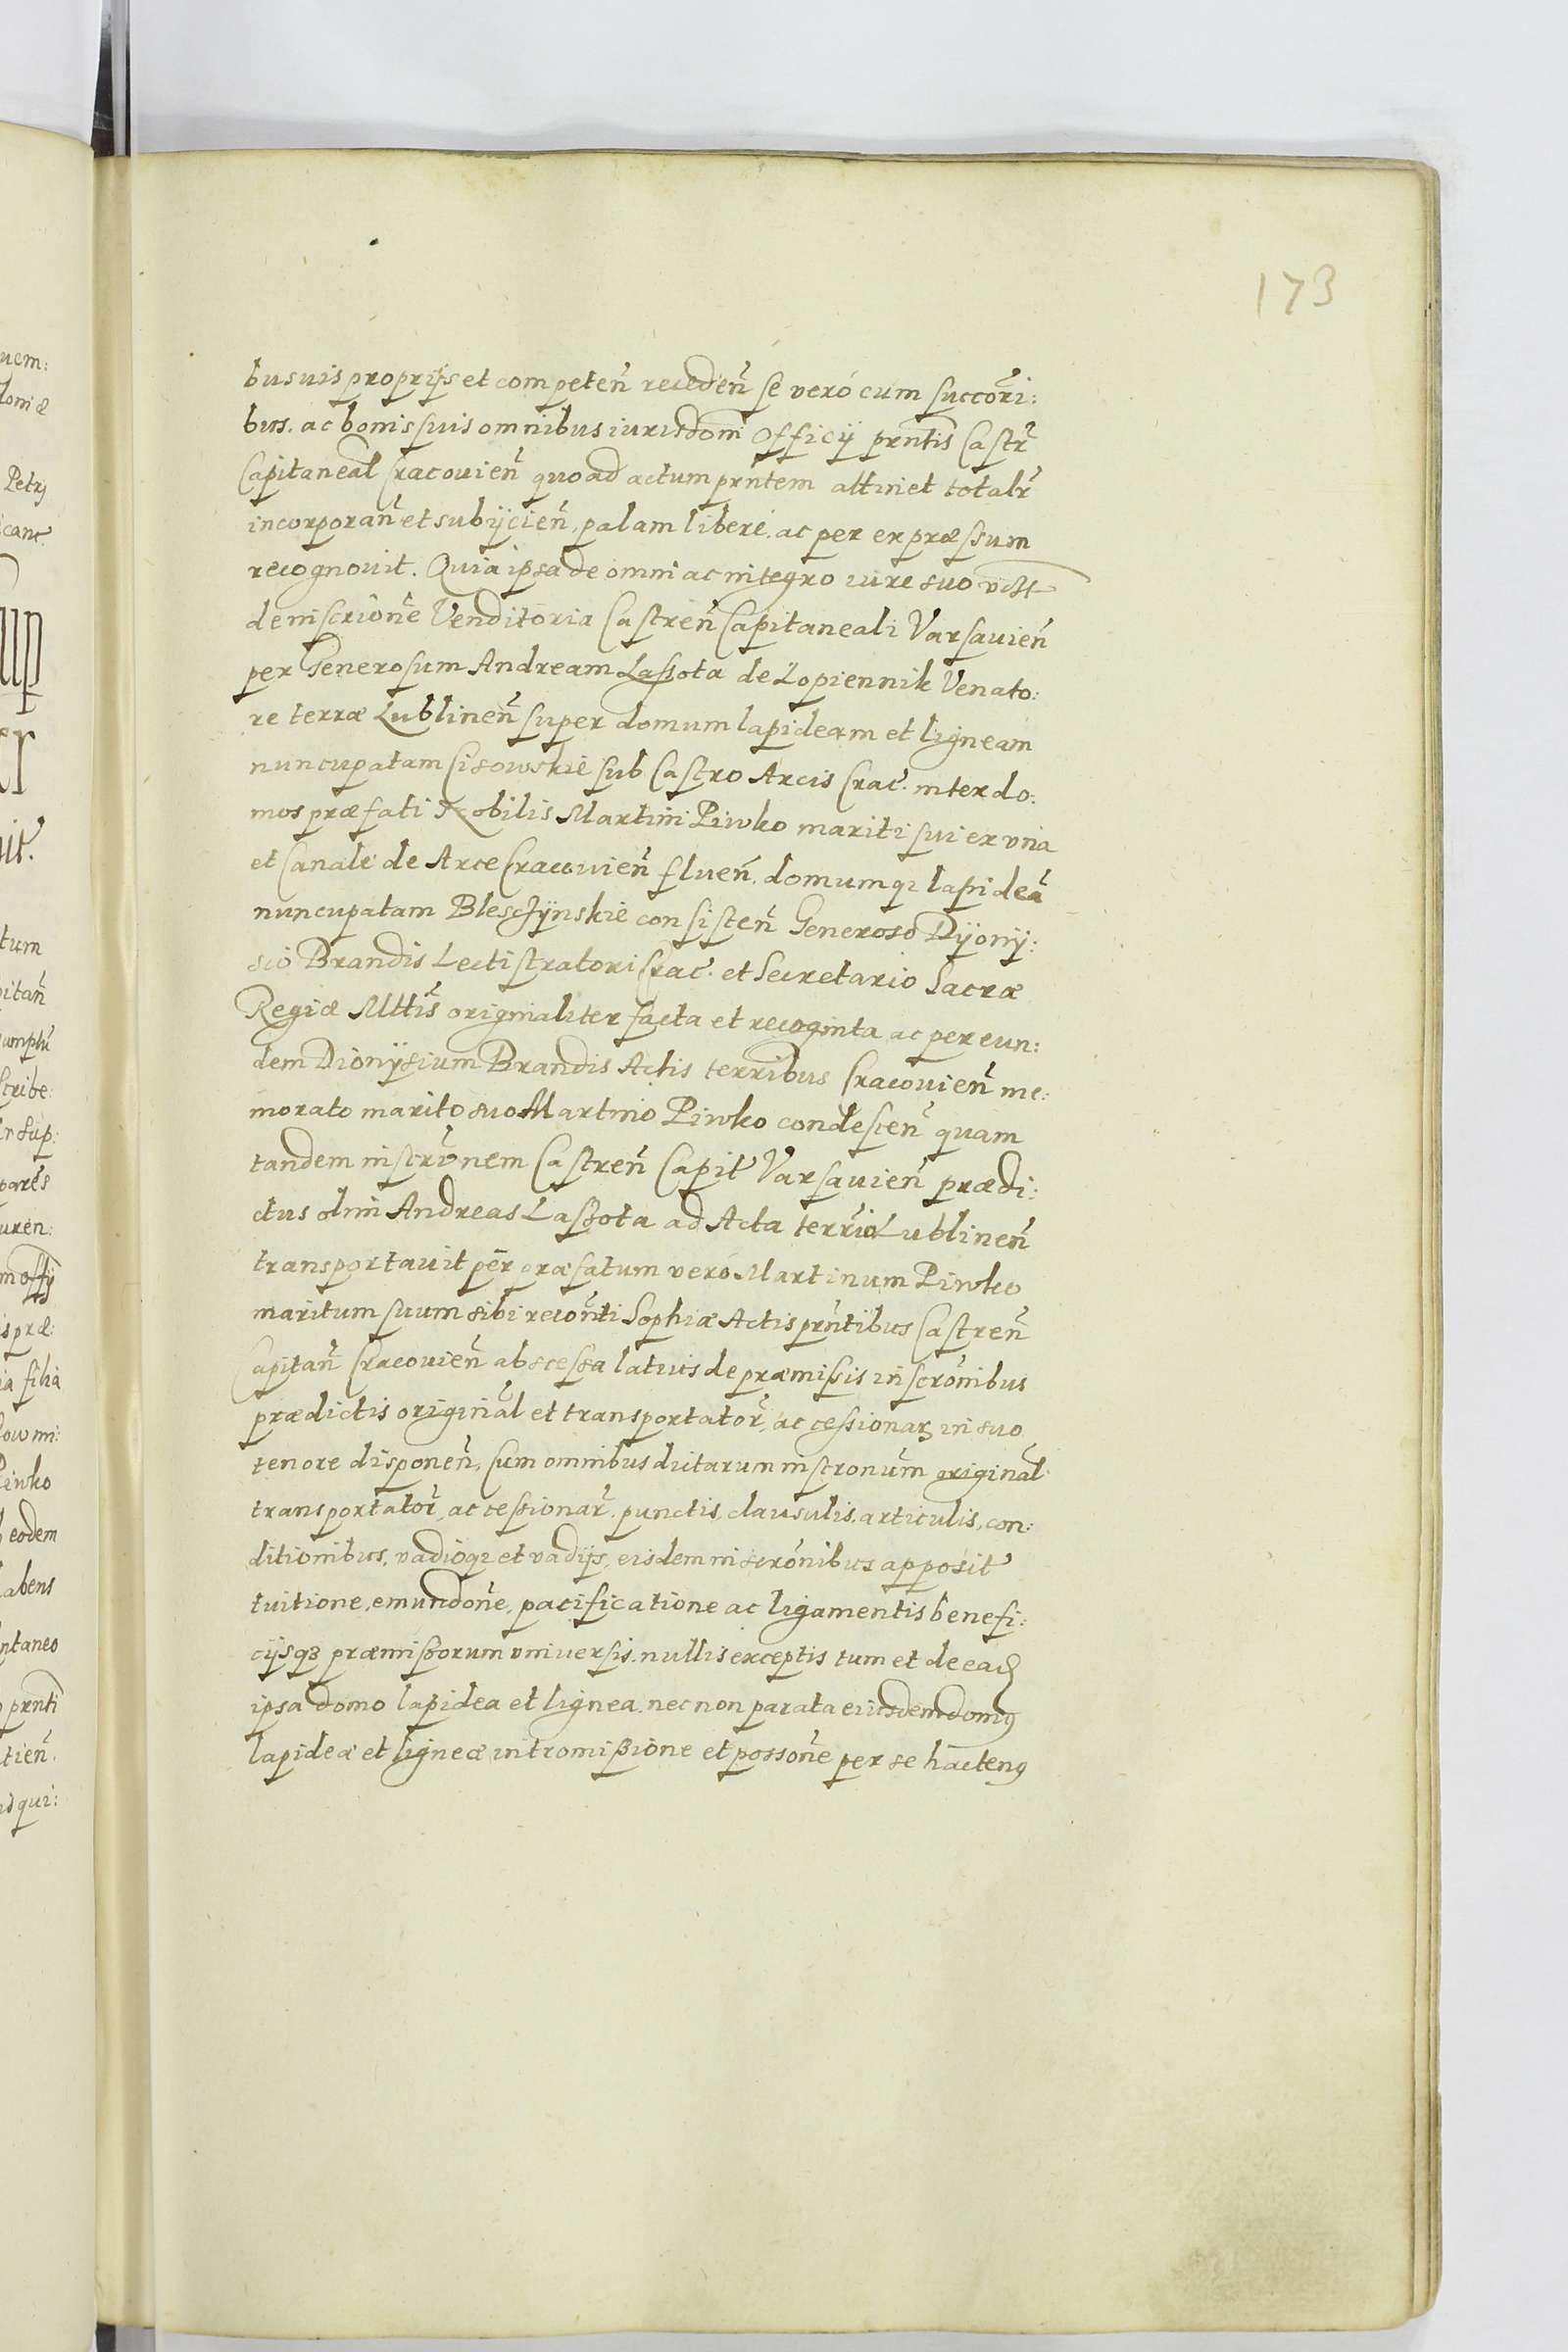 173
bus suis proprijs et competeñ recedeñ se veró cum succōri:
bus. ac bonis suis omnibus iurisdōni Officij prntis Castr̃
Capitaneal Cracovieñ quoad actum prntem attinet totalr̃
incorporañ et subijcieñ. palam liberé. ac per expræssum
recognovit. Quia ipsa de omni ac integro iure suo
de inscriõne Venditoria Castreñ Capitaneali Varsavieñ
per Generosum Andream Lassota de Łopiennik Venato:
re terræ Lublineñ super domum lapideam et ligneam
nuncupatam Cisowskie sub Castro Arcis Crac̃. inter do:
mos præfati Nobilis Martini Piwko mariti sui ex vna
et Canale de Arce Cracovieñ flueñ. domumq₂ lapideã
nuncupatam Blesczÿnskie consisteñ Generoso Dÿonÿ:
sió Brandis Lectistratori Crac̃. et Secretario Sacræ
Regiæ Mttis̃ originaliter facta et recognita ac per eun:
dem Dionÿsium Brandis Actis terribus Cracovieñ me:
morato marito suo Martino Piwko condesceñ quam
tandem inscrõnem Castreñ Capit̃ Varsavieñ prædi:
ctus olim Andreas Lassota ad Acta terr̃ia Lublineñ
transportavit per præfatum veró Martinum Piwko
maritum suum sibi recoñti Sophiæ Actis prñtibus Castreñ
Capitañ Cracovieñ abscessa latius de præmissis inscrõnibus
prædictis originãl et transportator̃, ac cessionar̃ in suo
tenore disponeñ. Cum omnibus dictarum inscronũm originãl
transportator̃, ac cessionar̃. punctis, clausulis, articulis, con:
ditionibus, vadioq₂ et vadijs, eisdem inscrõnibus apposit̃
tuitione, emundoñe, pacificatione ac ligamentis benefi:
cijsqȝ præmissorum vniversis. nullis exceptis tum et de eaḍ
ipsa domo lapidea et lignea. nec non parata eiusdem domꝰ
lapideæ et ligneæ intromissione et possoñe per se hactenꝰ